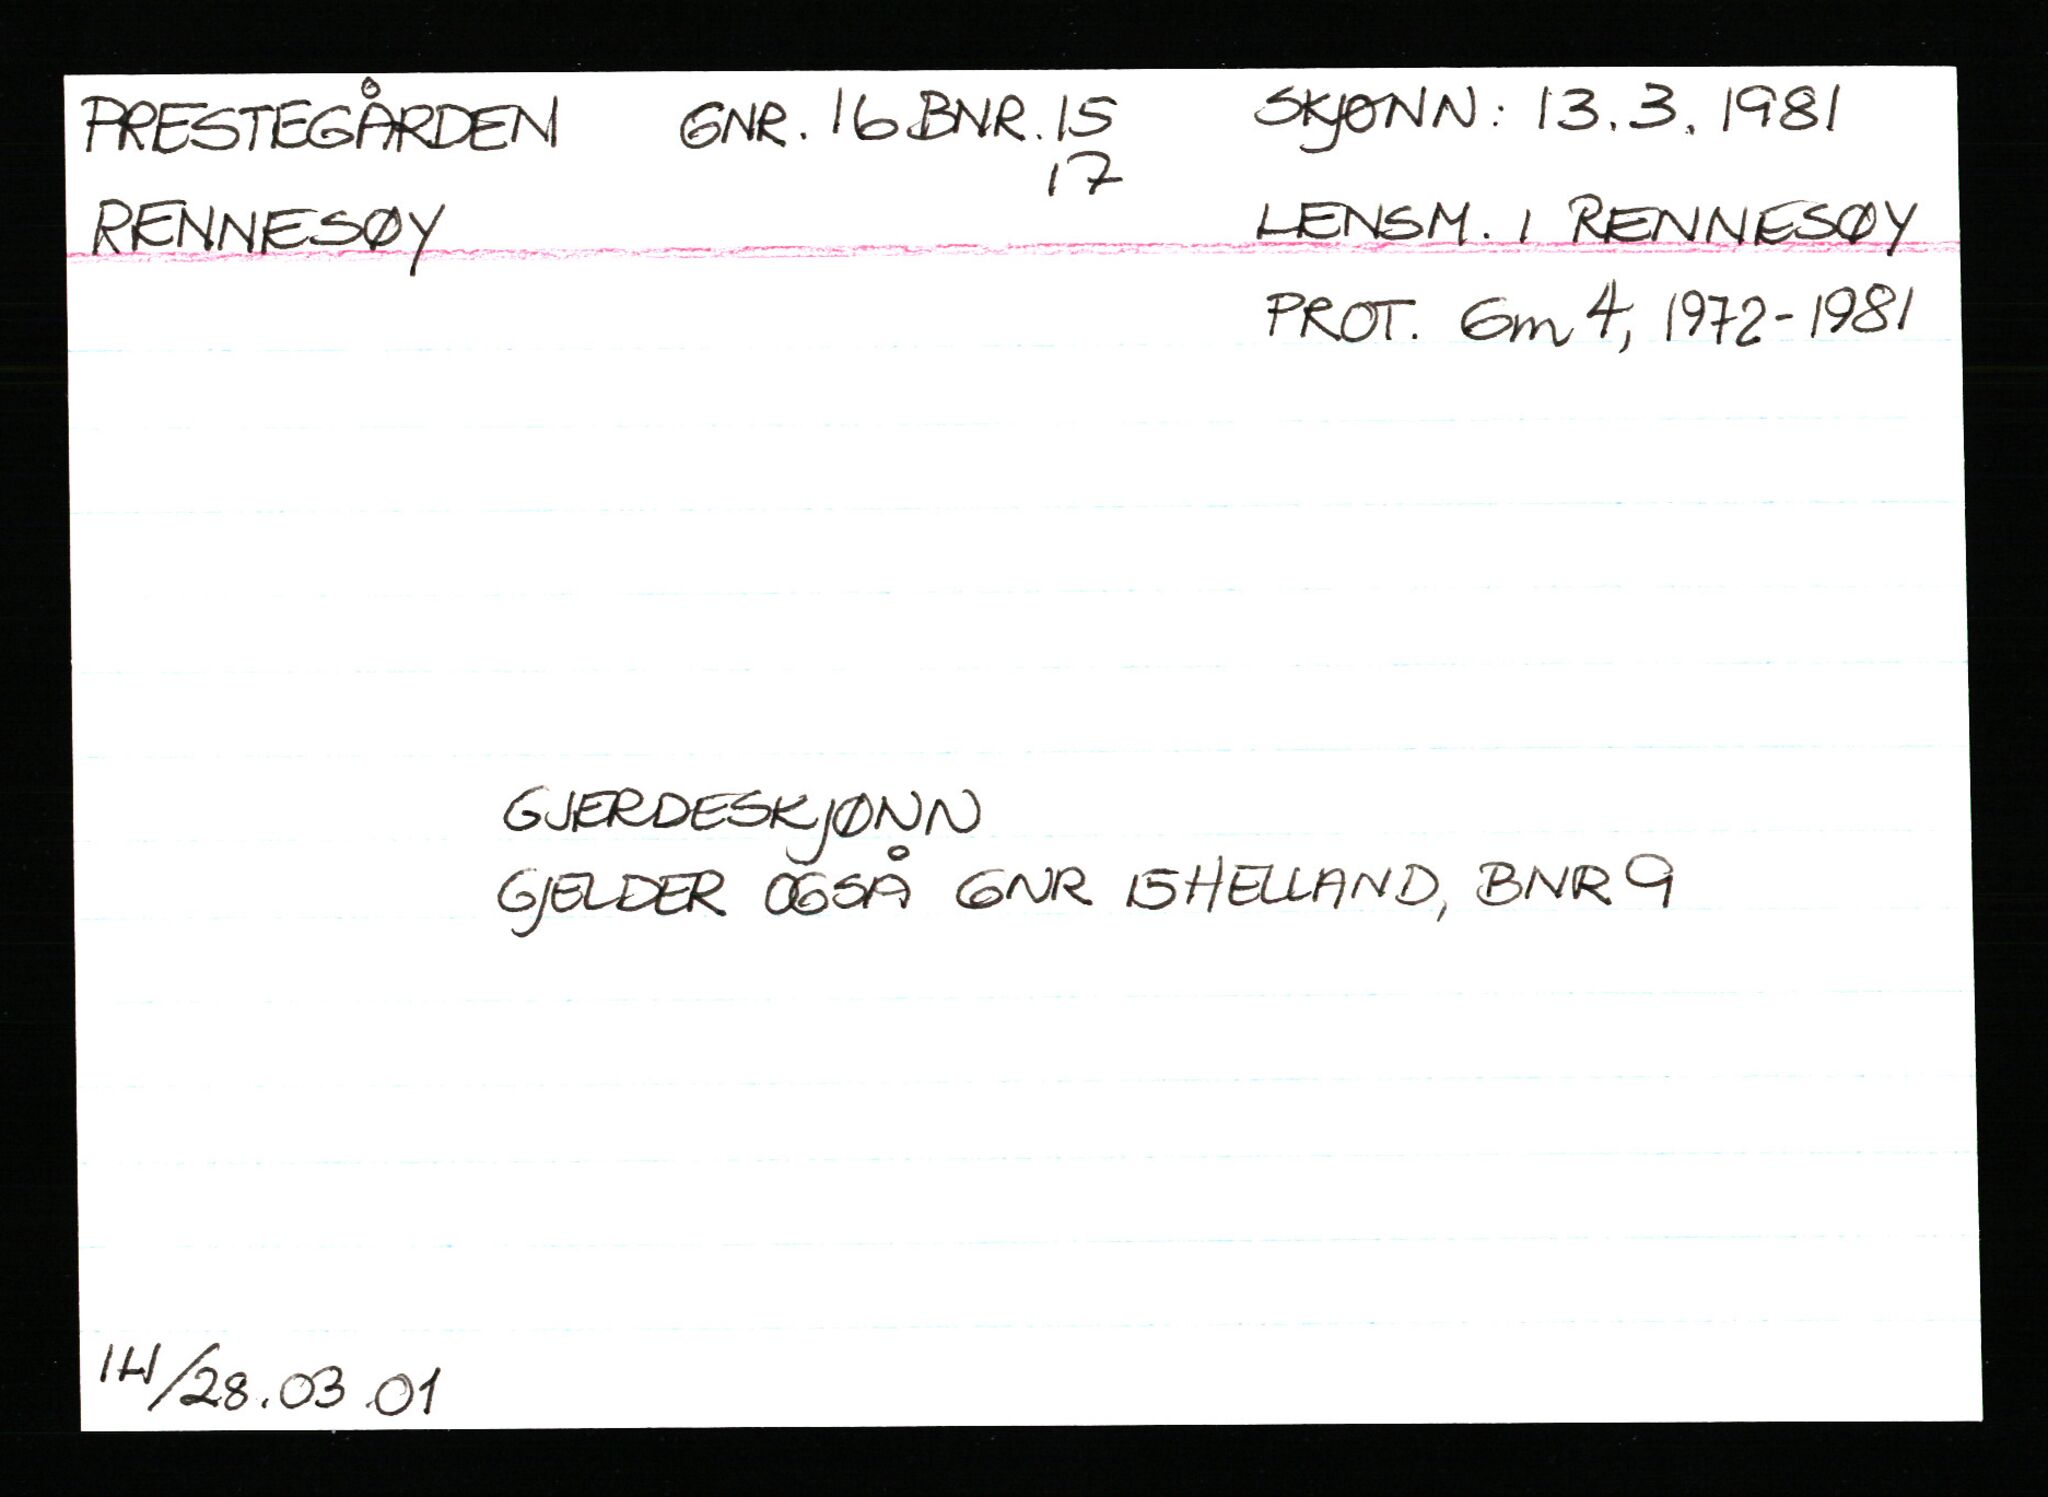 PRESTEGÅRDEN GNR. 16 BNR. 15 SKJØNN: 13.3.1981
17
RENNESØY LENSM. I RENNESØY
PROT. Gm 4, 1972-1981
GJERDESKJØNN
GJELDER OGSÅ GNR 15 HELLAND, BNR 9
IH/28.03.01